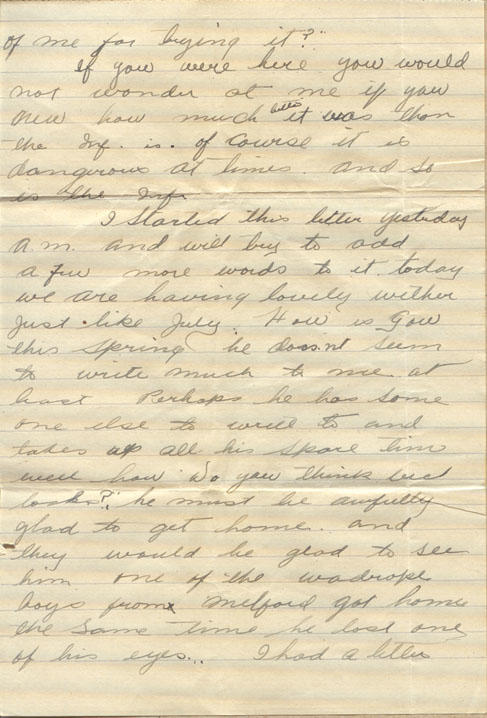 of me for trying it?"
If you were here you would
not wonder at me if you
new how much better it was than
the Inf. is. of course it is
dangerous at times. and so
is the Inf.
I Started this letter yesterday
a.m. and will try to add
a few more words to it today
we are having lovely wether
just like July. How is Gow
this spring he doesn't seem
to write much to me at
least Perhaps he has some
one else to write to and
takes up all his spare time
well how do you think
looks? he must be awfully
glad to get home. and
they would be glad to see
him one of the wadrope
boys from Milford got home
the same time he lost one
of his eyes... I had a letter